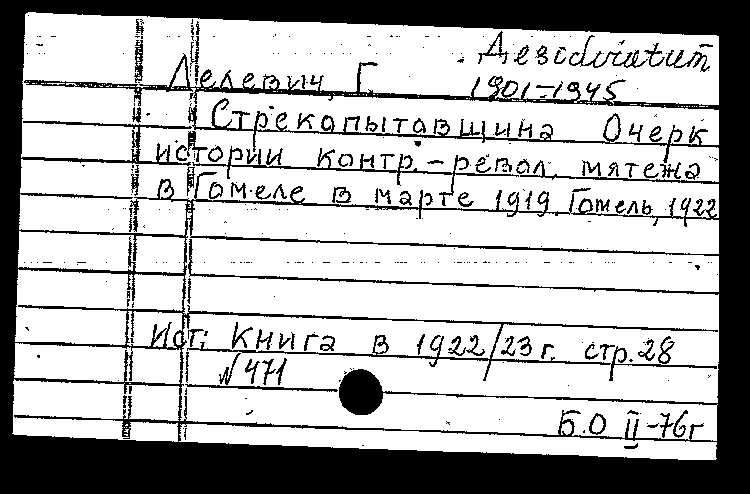 Дезidiratum
Лелевич, Г. 1901-1945
Стрекопытовщина Очерк
истории контр.-револ. мятежа
в Гомеле в марте 1919. Гомель, 1922
Ист: Книга в 1922/23 г. стр. 28
№ 471
Б.О II-76г